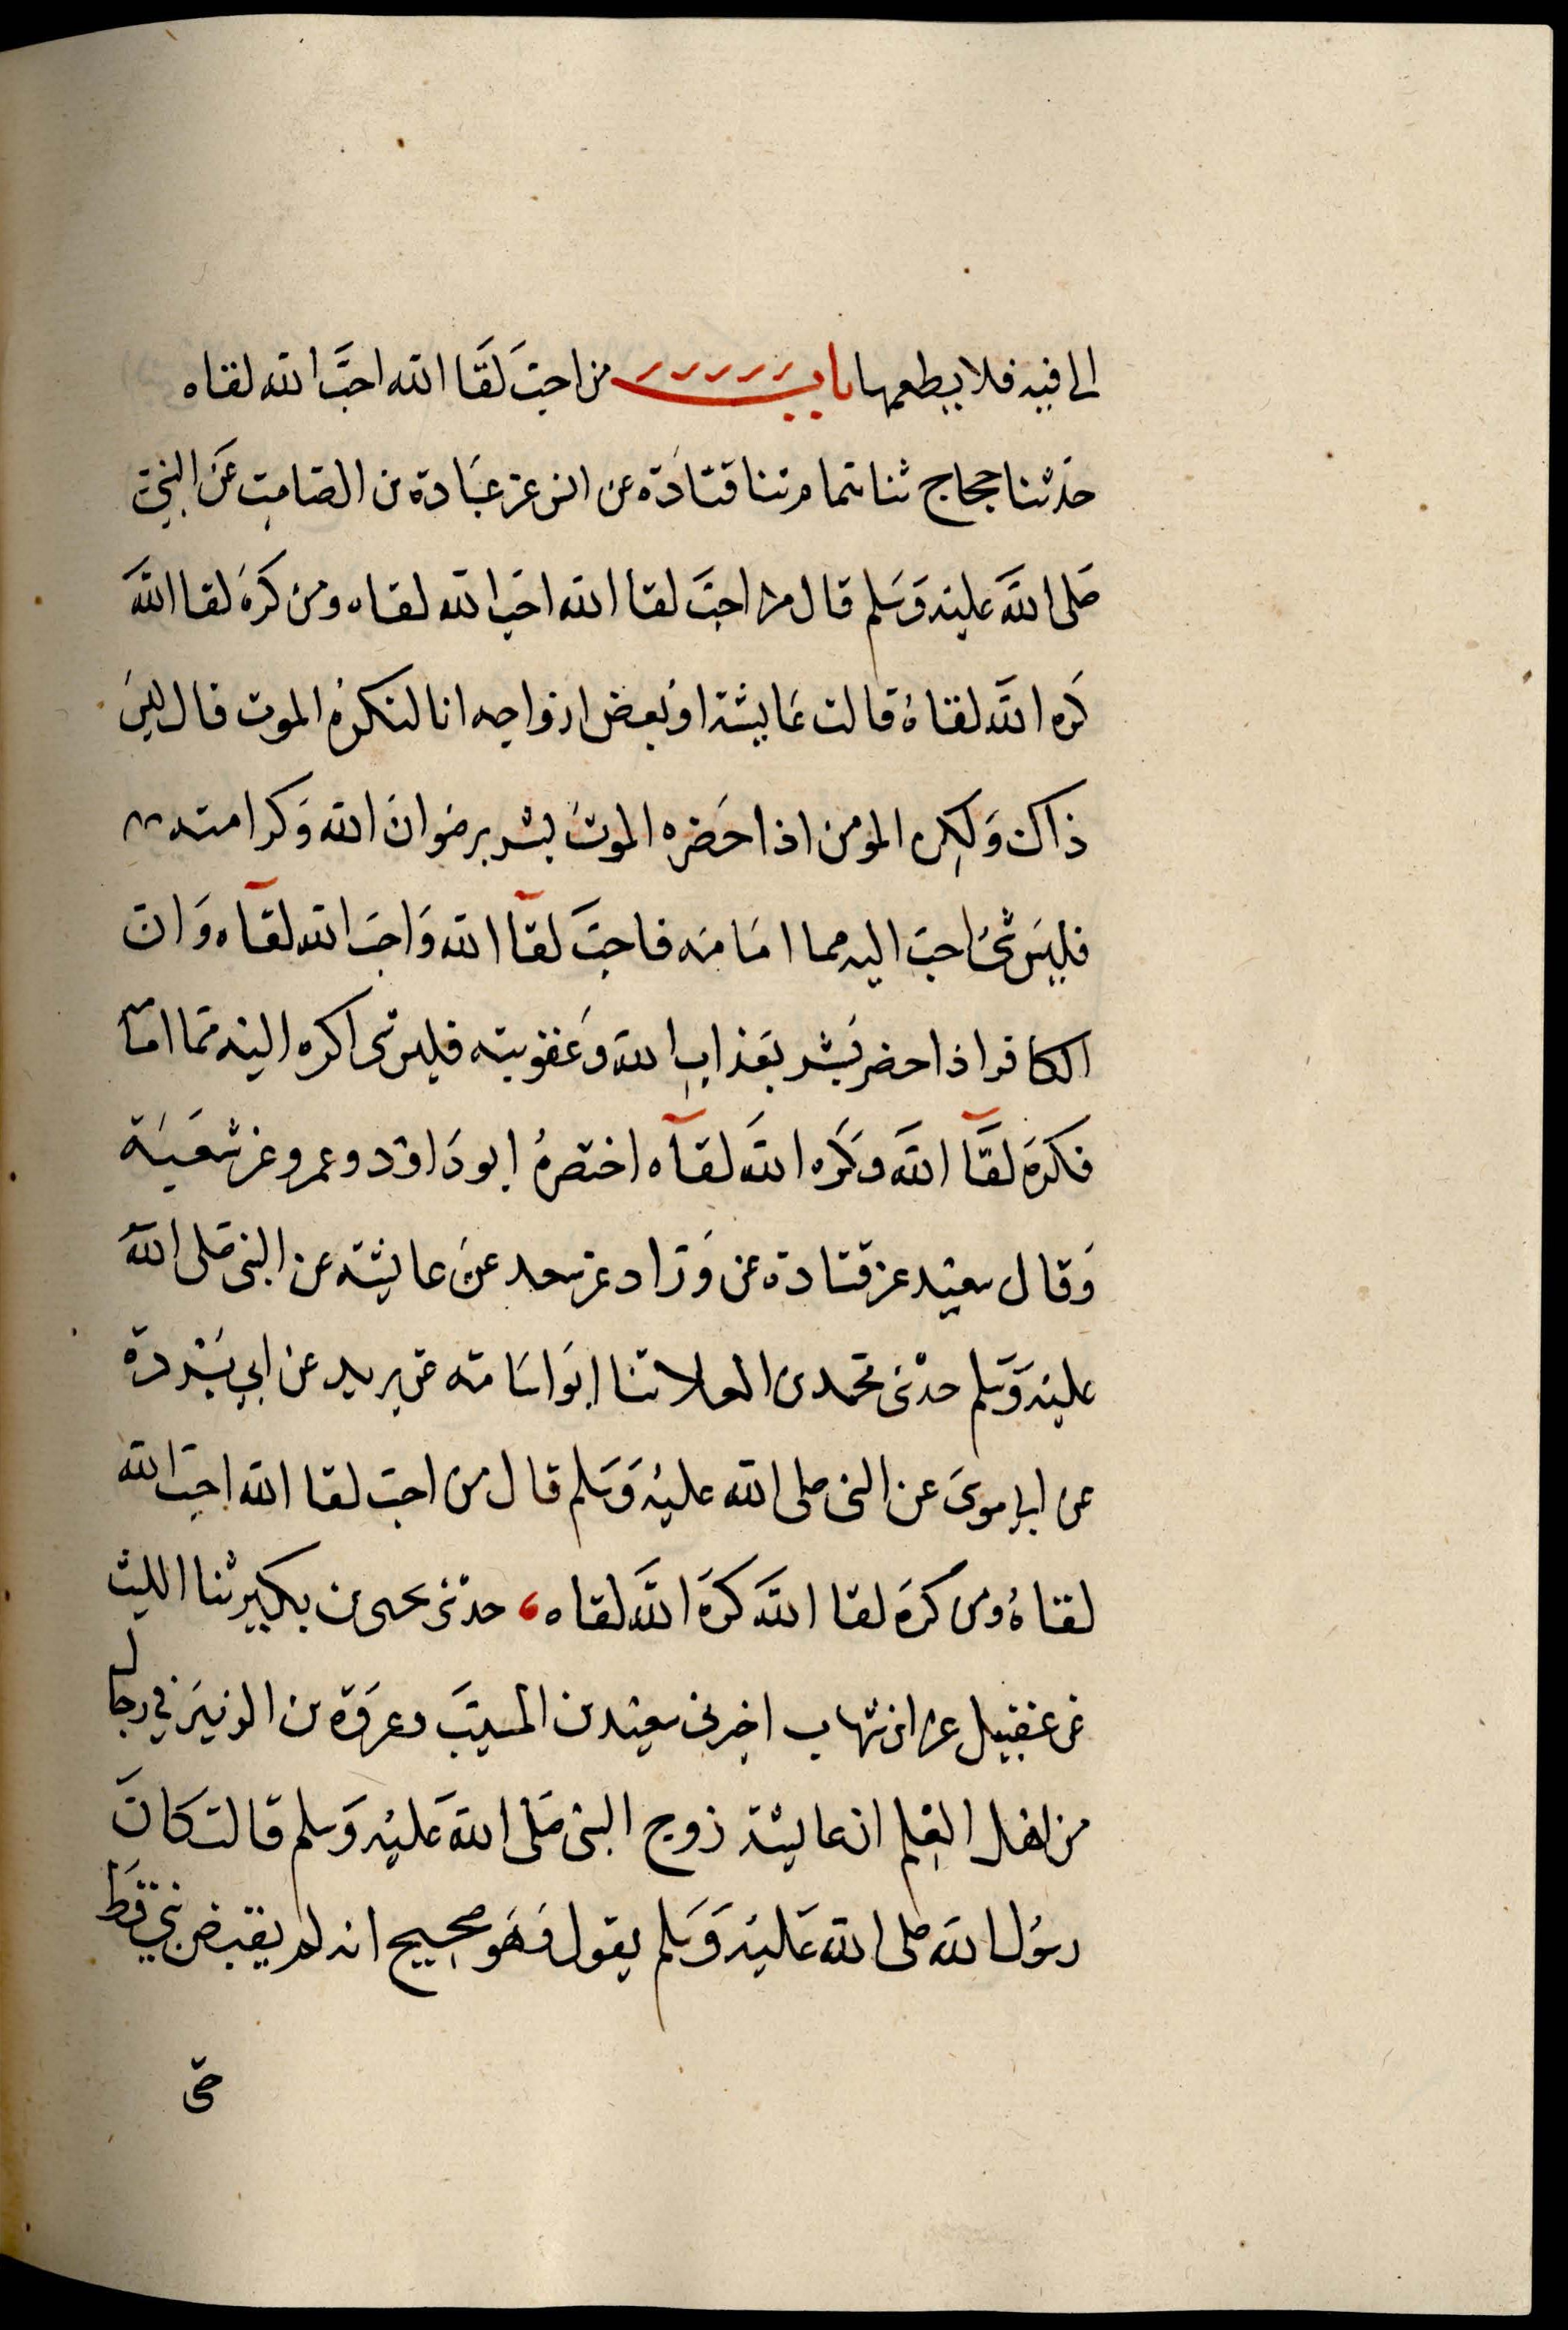 الى فيه فلا يطعمها باب من احبَّ لقَا الله احَبَّ الله لقاه
حَدثنا حجاج ثنا همام ثنا قتادَة عن انس عن عبَادة بن الصَامِت عَن النَّبي
صَلى اللهَ عليْه وَسَلم قال من احبَّ لقا الله احَبَ الله لقاه ومن كَرهَ لقا اللهَ
كَره الله لقاهُ قالت عَايشة او بَعض ازواجه انا لنكرهُ الموت قال ليسَ
ذاك وَلكِن المومن اذا حَضَره الموتُ بُشر برضوانَ الله وَكرامته
فليسَ شيُ احبَ اليه مما امَامَه فاحبَّ لقآ الله وَاحبَ الله لقآه وَان
الكافر اذا حضر بُشر بعَذابِ الله وَعُقوبته فليس شي اكره اليْه مما امَامَه
فكَرهَ لقَآ اللهَ وَكَره اللهَ لقآه اختصرهُ ابو دَاوْد وعمرو عن شعبَة
وَقال سعيْد عن قتادة عن زُرَارة عن سعد عن عايشة عن النبي صَلى اللهَ
عليْه وَسَلم حدثني محمد بن العلا ثنا ابوَ اسَامَة عن بريد عن ابي بُرْدة
عن ابي موسَى عن النبي صلى الله عليْه وَسَلم قال من احبَ لقا الله احبَ الله
لقاهُ ومن كرهَ لقا اللهَ كرهَ اللهَ لقاه، حدثني يحيى بن بكير ثنا الليث
عن عقيل عن ابن شهاب اخبرني سعيْد بن المسيَّب وعروَة بن الزبيَر في رجال
من اهل العِلم ان عايشة زوج النبي صَلى اللهَ عَليْه وَسلم قالت كانَ
رسُول الله صلى الله عَليْه وَسَلم يقول وَهوَ صحِيح انه لم يقبض نبي قَط
حتى